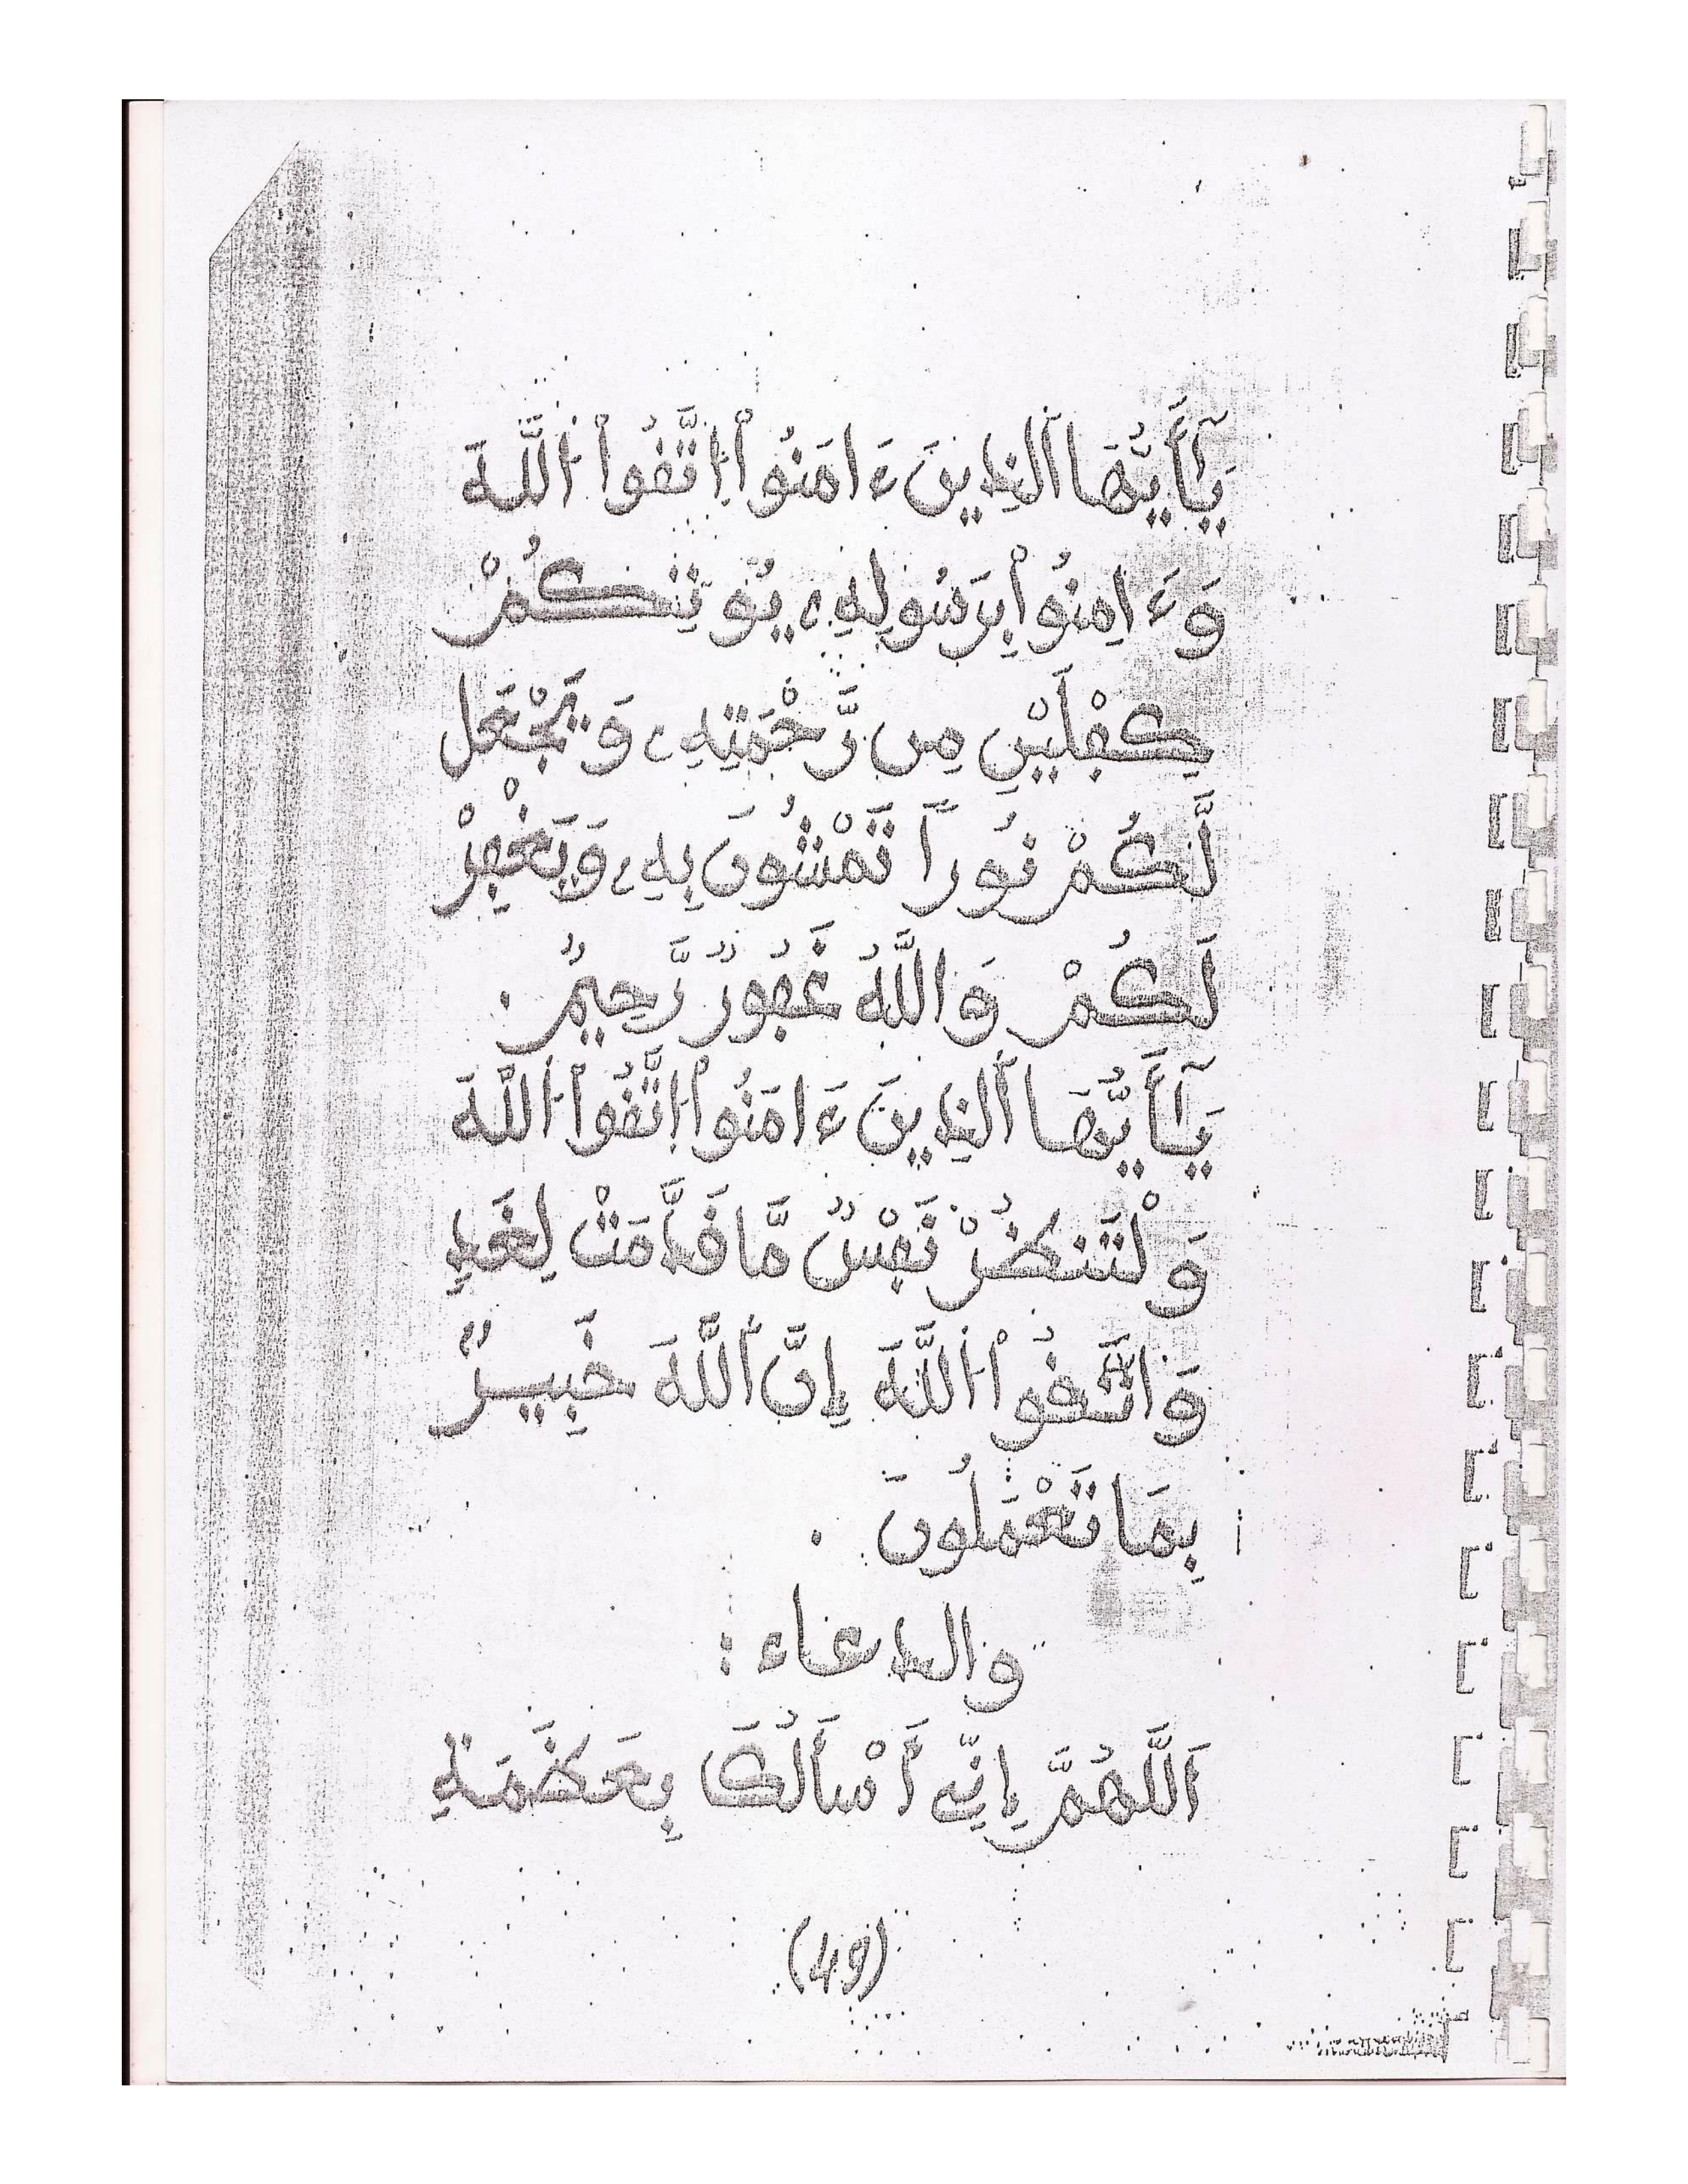 يَٰٓأَيُّهَا اَلذِينَ ءَامَنُواْ اُتَّقُواْ اُللَّهَ
وَءَامِنُواْ بِرَسُولِهِۦ يُوتِكُمْ
كِفْلَيْنِ مِن رَّحْمَتِهِۦ وَيَجْعَل
لَّكُمْ نُوراٗ تَمْشُونَ بِهِۦ وَيَغْفِرْ
لَكُمْ وَاللَّهُ غَفُورٌ رَّحِيمٌ .
يَٰٓأَيُّهَا اَلذِينَ ءَامَنُواْ اُتَّقُواْ اُللَّهَ
وَلْتَنظُرْ نَفْسٌ مَّا قَدَّمَتْ لِغَدٍ
وَاتَّقُواْ اُللَّهَ إِنَّ اَللَّهَ خَبِيرٌ
بِمَا تَعْمَلُونَ .
والدعاء :
اَللَّهُمَّ إِنِّي أَسْأَلُكَ بِعَظَمَةِ
(49)